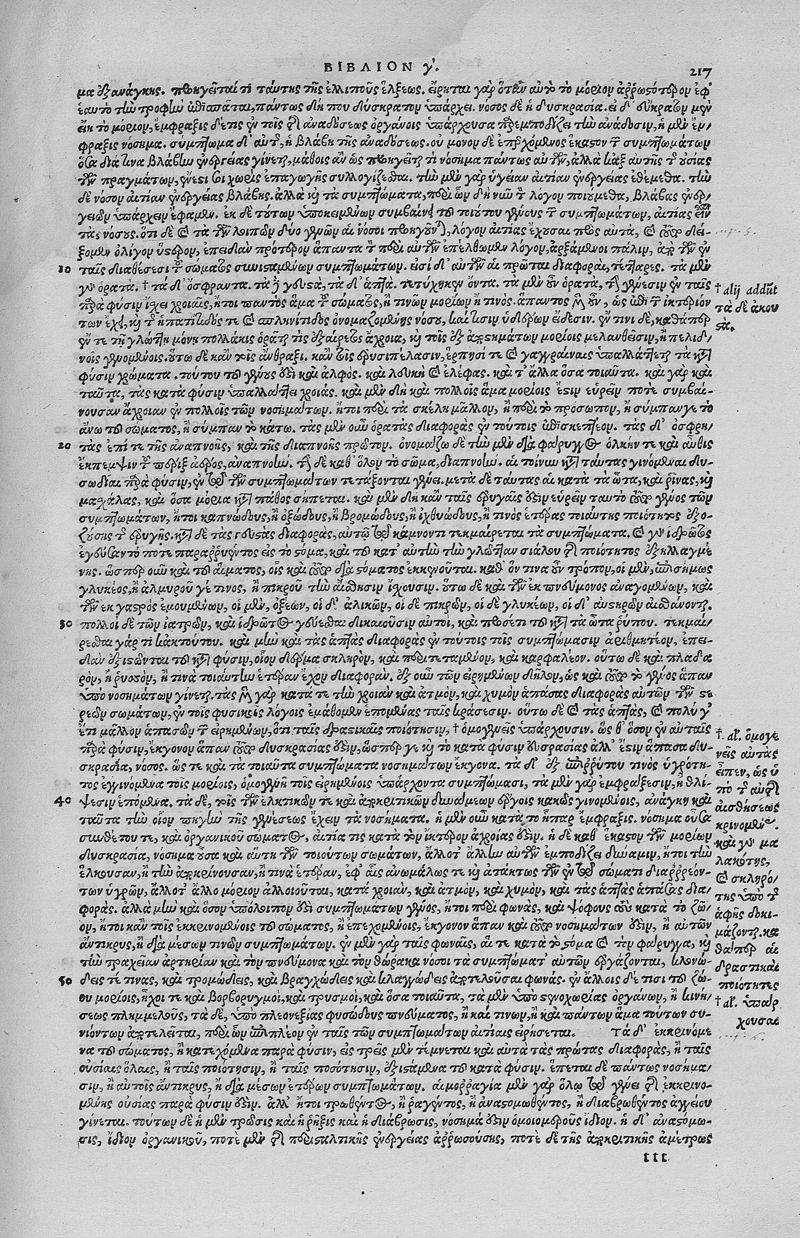 ΒΙΒΛΙΟΝ γ'. 217
μα ἐξ ἀνάγκης. προηγεῖται τι ταύτης τῆς ἐλλιποῦς ἕλξεως. εἴρηται γὰρ ὅταν αὐτὸ τὸ μόριον ἀῤῥωστότερον ἐφ'
ἑαυτὸ τὴν τροφὴν ἐπισπᾶται, πάντως δή που δύσκρατον ὑπάρχει. νόσος δὲ ἡ δυσκρασία. εἰ δ' εὔκρατον μὲν
εἴη τὸ μόριον, ἔμφραξις δέ τις ἐν τοῖς τῆς ἀναδόσεως ὀργάνοις ὑπάρχουσα παρεμποδίζει τὴν ἀνάδοσιν, ἡ μὲν ἔμ/
φραξις νόσημα. σύμπτωμα δ' αὐτῆς, ἡ βλάβη τῆς ἀναδόσεως. οὐ μόνον δὲ ἐπερχόμενος ἕκαστον τῶν συμπτωμάτων
ὅσα διά τινα βλάβην ἐνεργείας γίνεται, μάθοις ἂν ὡς προηγεῖται τι νόσημα πάντως αὐτῶν, ἀλλὰ κἀξ αὐτῆς τῆς οὐσίας
τῶν πραγμάτων, ἔνεστί σοι χωρὶς ἐπαγωγῆς συλλογίζεσθαι. τὴν μὲν γὰρ ὑγείαν αἰτίαν ἐνεργείας ἐθέμεθα. τὴν
δὲ νόσον αἰτίαν ἐνεργείας βλάβης. ἀλλὰ καὶ τὰ συμπτώματα, περὶ ὧν δὴ νῦν τὸν λόγον ποιούμεθα, βλάβας ἐνερ/
γειῶν ὑπάρχειν ἔφαμεν. ἐκ δὲ τούτων ὑποκειμένων συμβαίνει τοῦ ποιούτου γένους τῶν συμπτωμάτων, αἰτίας εἶναι
τὰς νόσους. ὅτι δὲ καὶ τῶν λοιπῶν δύο γενῶν αἱ νόσοι προηγοῦνται, λόγον αἰτίας ἔχουσαι πρὸς αὐτὰ, καὶ τοῦτο δεί-
ξομεν ὀλίγον ὕστερον, ἐπειδὰν πρότερον ἅπαντα τὸν περὶ αὐτῶν ἐπέλθωμεν λόγον, ἀρξάμενοι πάλιν, ἀπὸ τῶν ἐν
10 ταῖς διαθέσεσι τοῦ σώματος συνισταμένων συμπτωμάτων. εἰσὶ δ' αὐτῶν αἱ πρῶται διαφοραὶ, τέτταρες. τὰ μὲν
γὰρ ὁρατά. † τὰ δ' ὀσφραντά. τὰ δὲ γευστὰ, τὰ δ' ἁπτά. τετύχηκεν ὄντα. τὰ μὲν ἓν ὁρατὰ, τὴν γένεσιν ἐν ταῖς
παρὰ φύσιν ἴσχει χροιαῖς, ἤτοι παντὸς ἅμα τοῦ σώματος, ἤ τινων μορίων ἤ τινος. ἅπαντος μὲν οὖν, ὡς ἐπὶ τῶν ἰκτέρων
των ἔχει, καὶ τῆς ἡπατίτιδός τε καὶ σπληνίτιδος ὀνομαζομένης νόσου, κἀπὶ σὴν ὑδέρων εἴδεσιν. ἐν τινι δὲ, καθάπερ
ἐν τε τῇ γλώττῃ μόνῃ πολλάκις ὁρᾶται τὶς ἐξαίρετος ἄχροια, καὶ τοῖς ἐξ ἀχθημάτων μορίοις μελανθεῖσιν, ἢ πελιδ/
νοῖς γινομένοις. οὕτω δὲ κἂν τοῖς ἄνθραξι. κἂν τοῖς ἐρυσιπέλασιν, ἕρπησί τε καὶ γαγγραίναις ὑπαλλάττεται τὰ κατὰ
φύσιν χρώματα. τούτου τοῦ γένους ἐστὶ καὶ ἀλφός. καὶ λεύκη καὶ ἐλέφας. καὶ τ' ἄλλα ὅσα τοιαῦτα. καὶ γὰρ καὶ
ταῦτα, τὰς κατὰ φύσιν ὑπαλλάττει χροιάς. καὶ μὲν δὴ καὶ πολλοῖς ἅμα μορίοις ἐστὶν εὑρεῖν ποτε συμβαί-
νουσαν ἄχροιαν ἐν πολλοῖς τῶν νοσημάτων. ἤτοι περὶ τὰ σκέλη μᾶλλον, ἢ περὶ τὸ πρόσωπον, ἢ σύμπαν γε τὸ
ἄνω τοῦ σώματος, ἢ σύμπαν τὸ κάτω. τὰς μὲν οὖν ὁρατὰς διαφορὰς ἐν τούτοις ἐπισκεπτέον. τὰς δ' ὀσφρη-
20 τὰς ἐπί τε τῆς ἀναπνοῆς, καὶ τῆς διαπνοῆς πρῶτον. ὀνομάζω δὲ τὴν μὲν διὰ φάρυγγος ὁλκήν τε καὶ αὖθις
ἔκπεμψιν τοῦ πέριξ ἀέρος, ἀναπνοήν. τὴν δὲ καθ' ὅλον τὸ σῶμα, διαπνοήν. αἱ τοίνυν κατὰ ταύτας γινόμεναι δυ-
σωδίαι παρὰ φύσιν, ἐν τῷ τῶν συμπτωμάτων τετάξονται γένει. μετὰ δὲ ταύτας αἱ κατὰ τὰ ὦτα, καὶ ῥῖνας, καὶ
μασχάλας, καὶ ὅσα μόρια κατὰ πάθος σήπεται. καὶ μὲν δὴ κἀν ταῖς ἐρυγαῖς ἔστιν εὑρεῖν ταυτὸ τοῦτο γένος τῶν
συμπτωμάτων, ἤτοι καπνώδους, ἢ ὀξώδους, ἢ βρομώδους, ἢ ἰχθυώδους, ἤ τινος ἑτέρας τοιαύτης ποιότητος ἐξο-
ζούσης τῆς ἐρυγῆς. κατὰ δὲ τὰς γευστὰς διαφορὰς, αὐτῷ τῷ κάμνοντι τεκμαίρεται τὰ συμπτώματα. καὶ γὰρ ἱδρῶτος
ἐγεύσαντό ποτε παραῤῥυέντος εἰς τὸ στόμα, καὶ τοῦ κατ' αὐτὴν τὴν γλῶτταν σιάλου τῆς ποιότητος ἐξηλλαγμέ-
νης. ὥσπερ οὖν καὶ τοῦ αἵματος, οἷς καὶ τοῦτο διὰ στόματος ἐκκρίνουται. καθ' ὃν τινα οὖν τρόπον, οἱ μὲν, ὑποσήμως
γλυκέος, ἢ ἁλμυροῦ γέ τινος, ἢ πικροῦ τὴν αἴσθησιν ἴσχουσιν. οὕτω δὲ καὶ τῶν ἐκ πνεύμονος ἀναγομένων, καὶ
τῶν ἐκ γαστρὸς ἐμουμένων, οἱ μὲν, ὀξέων, οἱ δ' ἁλικῶν, οἱ δὲ πικρῶν, οἱ δὲ γλυκέων, οἱ δ' αὐστηρῶν αἰσθάνονται.
30 πολλοὶ δὲ τῶν ἰατρῶν, καὶ ἱδρῶτος γεύεσθαι δικαιοῦσιν αὐτοὶ, καὶ προσέτι τοῦ κατὰ τὰ ὦτα ῥύπου. τεκμαί/
ρεσθαι γάρ τι κἀκ τούτου. καὶ μὲν καὶ τὰς ἁπτὰς διαφορὰς ἐν τούτοις τοῖς συμπτώμασιν ἀριθμητέον, ἐπει-
δὰν ἐξιστῶνται τοῦ κατὰ φύσιν, οἷον δέρμα σκληρὸν, καὶ περιτεταμένον, καὶ καρφαλέον. οὕτω δὲ καὶ πλαδα
ρὸν, ἢ ῥυσσὸν, ἤ τινα τοιαύτην ἑτέραν ἔχον διαφοράν. ἐξ οὖν τῶν εἰρημένων δῆλον, ὡς καὶ τοῦτο τὸ γένος ἅπαν
ὑπὸ νοσημάτων γίνεται. τὰς μὲν γὰρ κατά τε τὴν χροιὰν καὶ ἀτμὸν, καὶ χυμὸν ἁπάσας διαφορὰς αὐτῶν τῶν στε
ρεῶν σωμάτων, ἐν τοῖς φυσικοῖς λόγοις ἐμάθομεν ἑπομένας ταῖς κράσεσιν. οὕτω δὲ καὶ τὰς ἁπτὰς, καὶ πολύ γ'
ἔτι μᾶλλον ἁπασῶν τῶν εἰρημένων, ὅτι ταῖς δραστικαῖς ποιότησιν, † ὁμογενεῖς ὑπάρχουσιν. ὡς θ' ὅσον ἐν αὐταῖς
παρὰ φύσιν, ἔκγονον ἅπαν τοῦτο δυσκρασίας ἐστὶν, ὥσπερ γε καὶ τὸ κατὰ φύσιν εὐκρασίας ἀλλ' ἔστιν ἅπασα δυ-
σκρασία, νόσος. ὥς τε καὶ τὰ τοιαῦτα συμπτώματα νοσημάτων ἔκγονα. τὰ δ' ἐξ ἐπιῤῥύτου τινὸς ὑγρότη-
τος ἐγγινόμενα τοῖς μορίοις, ὁμογενῆ τοῖς εἰρημένοις ὑπάρχοντα συμπτώμασι, τὰ μὲν γὰρ ἐμφράξεσιν, ἢ θλί-
40 ψεσιν ἑπόμενα. τὰ δὲ, τοῖς τῶν ἑλκτικῶν τε καὶ ἀποκριτικῶν δυνάμεων ἔργοις κακῶς γινομένοις, ἀνάγκη καὶ
ταῦτα τὴν οἷον πηγὴν τῆς γενέσεως ἔχειν τὰ νοσήματα. ἡ μὲν οὖν κατὰ τὸ ἧπαρ ἔμφραξις. νόσημα οὖσα
συνθέτου τε, καὶ ὀργανικοῦ σώματος, αἰτία τις κατὰ τὸν ἴκτερον ἀχροίας ἐστίν. ἡ δὲ καθ' ἕκαστον τῶν μορίων
δυσκρασία, νόσημα οὖσα καὶ αὐτὴ τῶν τοιούτων σωμάτων, ἄλλοτ' ἄλλην αὐτῶν ἐμποδίζει δύναμιν, ἤτοι τὴν
ἕλκουσαν, ἢ τὴν ἀποκρίνουσαν, ἤ τινα ἑτέραν, ἐφ' αἷς ἀνωμάλως τε καὶ ἀτάκτως τῶν ἐν τῷ σώματι διαῤῥεόν-
των ὑγρῶν, ἄλλοτ' ἄλλο μόριον ἀλλοιοῦται, κατὰ χροιὰν, καὶ ἀτμὸν, καὶ χυμὸν, καὶ τὰς ἁπτὰς ἁπάσας δια/
φοράς. ἀλλὰ μὴν καὶ ὅσον ὑπόλοιπόν ἐστι συμπτωμάτων γένος, ἤτοι περὶ φωνὰς, καὶ ψόφους τοὺς κατὰ τὸ ζῶ-
ον, ἤτοι κἀν τοῖς ἐκκρινομένοις τοῦ σώματος, ἢ ἐπεχομένοις, ἔκγονον ἅπαν καὶ τοῦτο νοσημάτων ἐστὶν, ἢ αὐτῶν
ἄντικρυς, ἢ διὰ μέσων τινῶν συμπτωμάτων. ἐν μὲν γὰρ ταῖς φωναῖς, αἵ τε κατὰ τὸ στόμα καὶ τὴν φάρυγγα, καὶ
τὴν τραχεῖαν ἀρτηρίαν καὶ τὸν πνεύμονα καὶ τὸν θώρακα νόσοι τὰ συμπτώματ' αὐτῶν ἐργάζονται, κλαγγώ-
50 δεις τε τινὰς, καὶ τρομώδεις, καὶ βραγχώδεις καὶ κλαγγώδεις ἀποτελοῦσαι φωνάς. ἐν ἄλλοις δέ τισι τοῦ ζώ-
ου μορίοις, ἦχοί τε καὶ βορβορυγμοὶ, καὶ τρυσμοὶ, καὶ ὅσα τοιαῦτα, τὰ μὲν ὑπὸ στενοχωρίας ὀργάνων, ἢ κινή-
σεως πλημμελοῦς, τὰ δὲ, ὑπὸ πλεονεξίας φυσώδους πνεύματος, ἢ καί τινων, ἢ καὶ πάντων ἅμα τούτων συ-
νιόντων ἀποτελεῖται, περὶ ὧν ἐπιπλέον ἐν ταῖς τῶν συμπτωμάτων αἰτίαις εἰρήσεται. Τὰ δ' ἐκκρινόμε
να τοῦ σώματος, ἢ κατεχόμενα παρὰ φύσιν, εἰς τρεῖς μὲν τέμνεται καὶ αὐτὰ τὰς πρώτας διαφορὰς, ἢ ταῖς
οὐσίαις ὅλαις, ἢ ταῖς ποιότησιν, ἢ ταῖς ποσότησιν, ἐξιστάμενα τοῦ κατὰ φύσιν. ἕπεται δὲ πάντως νοσήμα/
σιν, ἢ αὐτοῖς ἄντικρυς, ἢ διὰ μέσων ἑτέρων συμπτωμάτων. αἱμοῤῥαγία μὲν γὰρ ὅλῳ τῷ γένει τῆς ἐκκρινο-
μένης οὐσίας παρὰ φύσιν ἐστίν. ἀλλ' ἤτοι τρωθέντος, ἢ ῥαγέντος, ἢ ἀναστομωθέντος, ἢ διαβρωθέντος ἀγγείου
γίνεται. τούτων δὲ ἡ μὲν τρῶσις καὶ ἡ ῥῆξις καὶ ἡ διάβρωσις, νόσημά ἐστιν ὁμοιομεροῦς ἴδιον. ἡ δ' ἀναστόμω-
σις, ἴδιον ὀργανικοῦ, ποτὲ μὲν τῆς περισταλτικῆς ἐνεργείας ἀῤῥωστούσης, ποτὲ δὲ τῆς ἀποκριτικῆς ἀμέτρως
ttt
† alij addūt
τὰ δὲ ἀκου
στὰ.
† al. ὁμογε
νεῖς αὐτὰς
εἶπεν, ὡς ὑ
πὸ τ' αὐτῆς
αἰσθήσεως
κρινομένας.
καὶ γὰρ μα
λακότης,
καὶ σκληρό/
της ὑπὸ τῆς
ἁφῆς δοκι-
μάζονται κα
θάπερ αἱ
δραστικαὶ
ποιότητες
† al. ὑπάρ
χουσαι